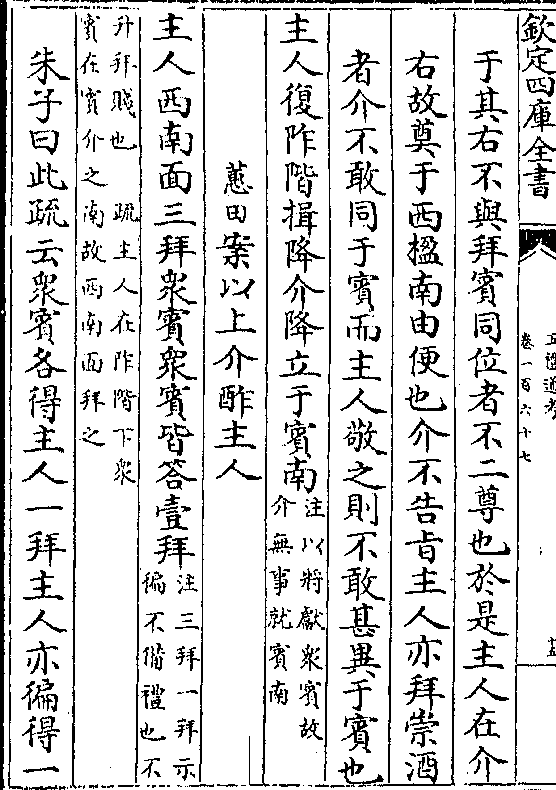 欽定四庫全書
五禮通考
卷一百六十七
于其右不與拜賓同位者不二尊也於是主人在介
右故奠于西楹南由便也介不告旨主人亦拜崇酒
者介不敢同于賓而主人敬之則不敢甚異于賓也
主人復阼階揖降介降立于賓南
注以將獻衆賓故
介無事就賓南
蕙田案以上介酢主人
主人西南面三拜衆賓衆賓皆答壹拜
注三拜一拜示
徧不備禮也不
升拜賤也　疏主人在阼階下衆
賓在賓介之南故西南面拜之
朱子曰此疏云衆賓各得主人一拜主人亦徧得一